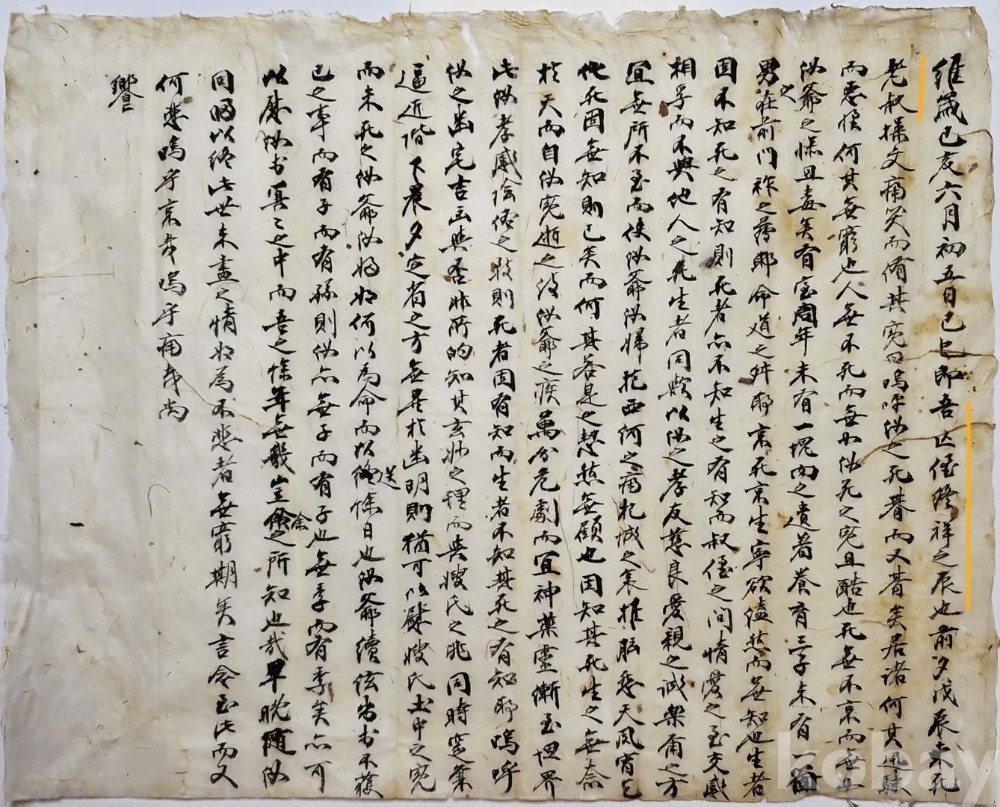 維歲己亥六月初五日己巳即吾亡侄終祥之辰也前夕戊辰未死
老叔操文痛哭而侑其寃曰嗚呼汝之死朞而又朞矣居諸何其迅駛
而憂懷何其無窮也人無不死而無如汝死之寃且酷也死無不哀而無如
汝爺之慘且毒矣有室周年未有一塊肉之遺着養育三子未有一箇
男之在前門祚之薄耶命道之舛耶哀死哀生寧欲溘然而無知也生者
固不知死之有知則死者亦不知生之有知而叔侄之間情愛之至交感
相孚而不與他人之死生者同歟以汝之孝友慈良愛親之誠樂甫之方
宜無所不至而使汝爺汝婦抱西河之痛杞城之哀推胸悲天
他死固無知則已矣而何其若是之愸然無顧也固知其死生之無
於天而自汝寃逝之後汝爺之疾萬分危劇而宜神藥靈漸至世界
此汝孝感以致則死者固有知而生者不知其死之有知耶嗚呼
汝之幽宅吉凶與否非所的知其玄妙之理而與嫂氏之兆同時定築
逼近階下晨夕定省之方無異於幽明則猶可以慰嫂氏土中之寃
而未死之汝爺汝婦何以為命而以送餘日也汝爺續絃不獲
已之事而有子而有孫則汝亦無子而有子也無季而有季矣亦可
以慰汝於冥冥之中而吾之餘年無幾豈余之所知也哉早晚隨汝
同歸以終此世未盡之情如為不悲者無窮期矣言念至此而又
何悲嗚乎哀哉嗚乎痛哉尚
饗
kobay